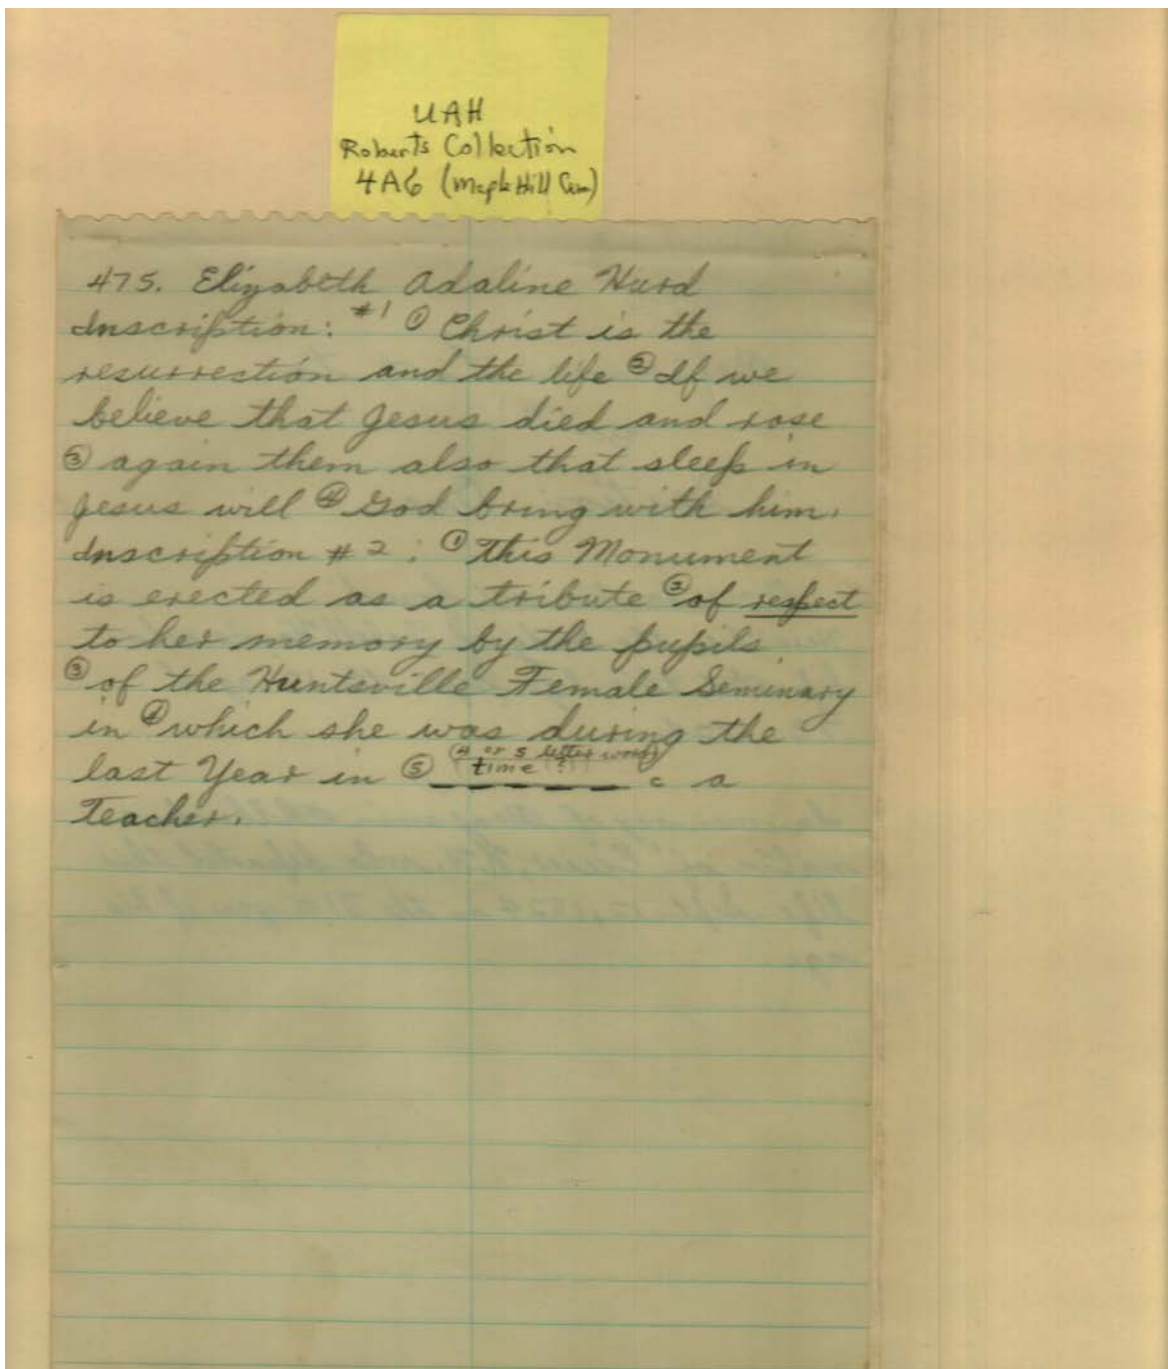 UAH
Roberts Collection
4A6 (Maple Hill Cem)
475. Elizabeth Adaline Hurd
Inscription: #1 ① Christ is the
resurrection and the life ② If we
believe that Jesus died and rose
③ again them also that sleep in
Jesus will ④ God bring with him.
Inscription #2: ① This Monument
is erected as a tribute ② of respect
to her memory by the pupils
③ of the Huntsville Female Seminary
in ④ which she was during the
(4 or 5 letter word)
last Year in ⑤ time ? _ _ _ _ _ c a
Teacher.